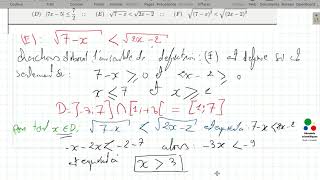 (D) |7x − 5| ≤ 7/2 :: (E) √7 − x < √2x − 2 :: (F) √(7 − x)² < √(2x − 2)²
(E): √7-x < √2x-2
cherchons d'abord l'ensemble de définition: (E) est définie si et
seulement si: 7-x ≥ 0 et 2x-2 ≥ 0
x ≤ 7 et x ≥ 1
D = ]-∞,7] ∩ [1,+∞[ = [1;7]
pour tout x∈D, √7-x < √2x-2 7-x < 2x-2
-x-2x < -2-7 alors: -3x < -9
x > 3